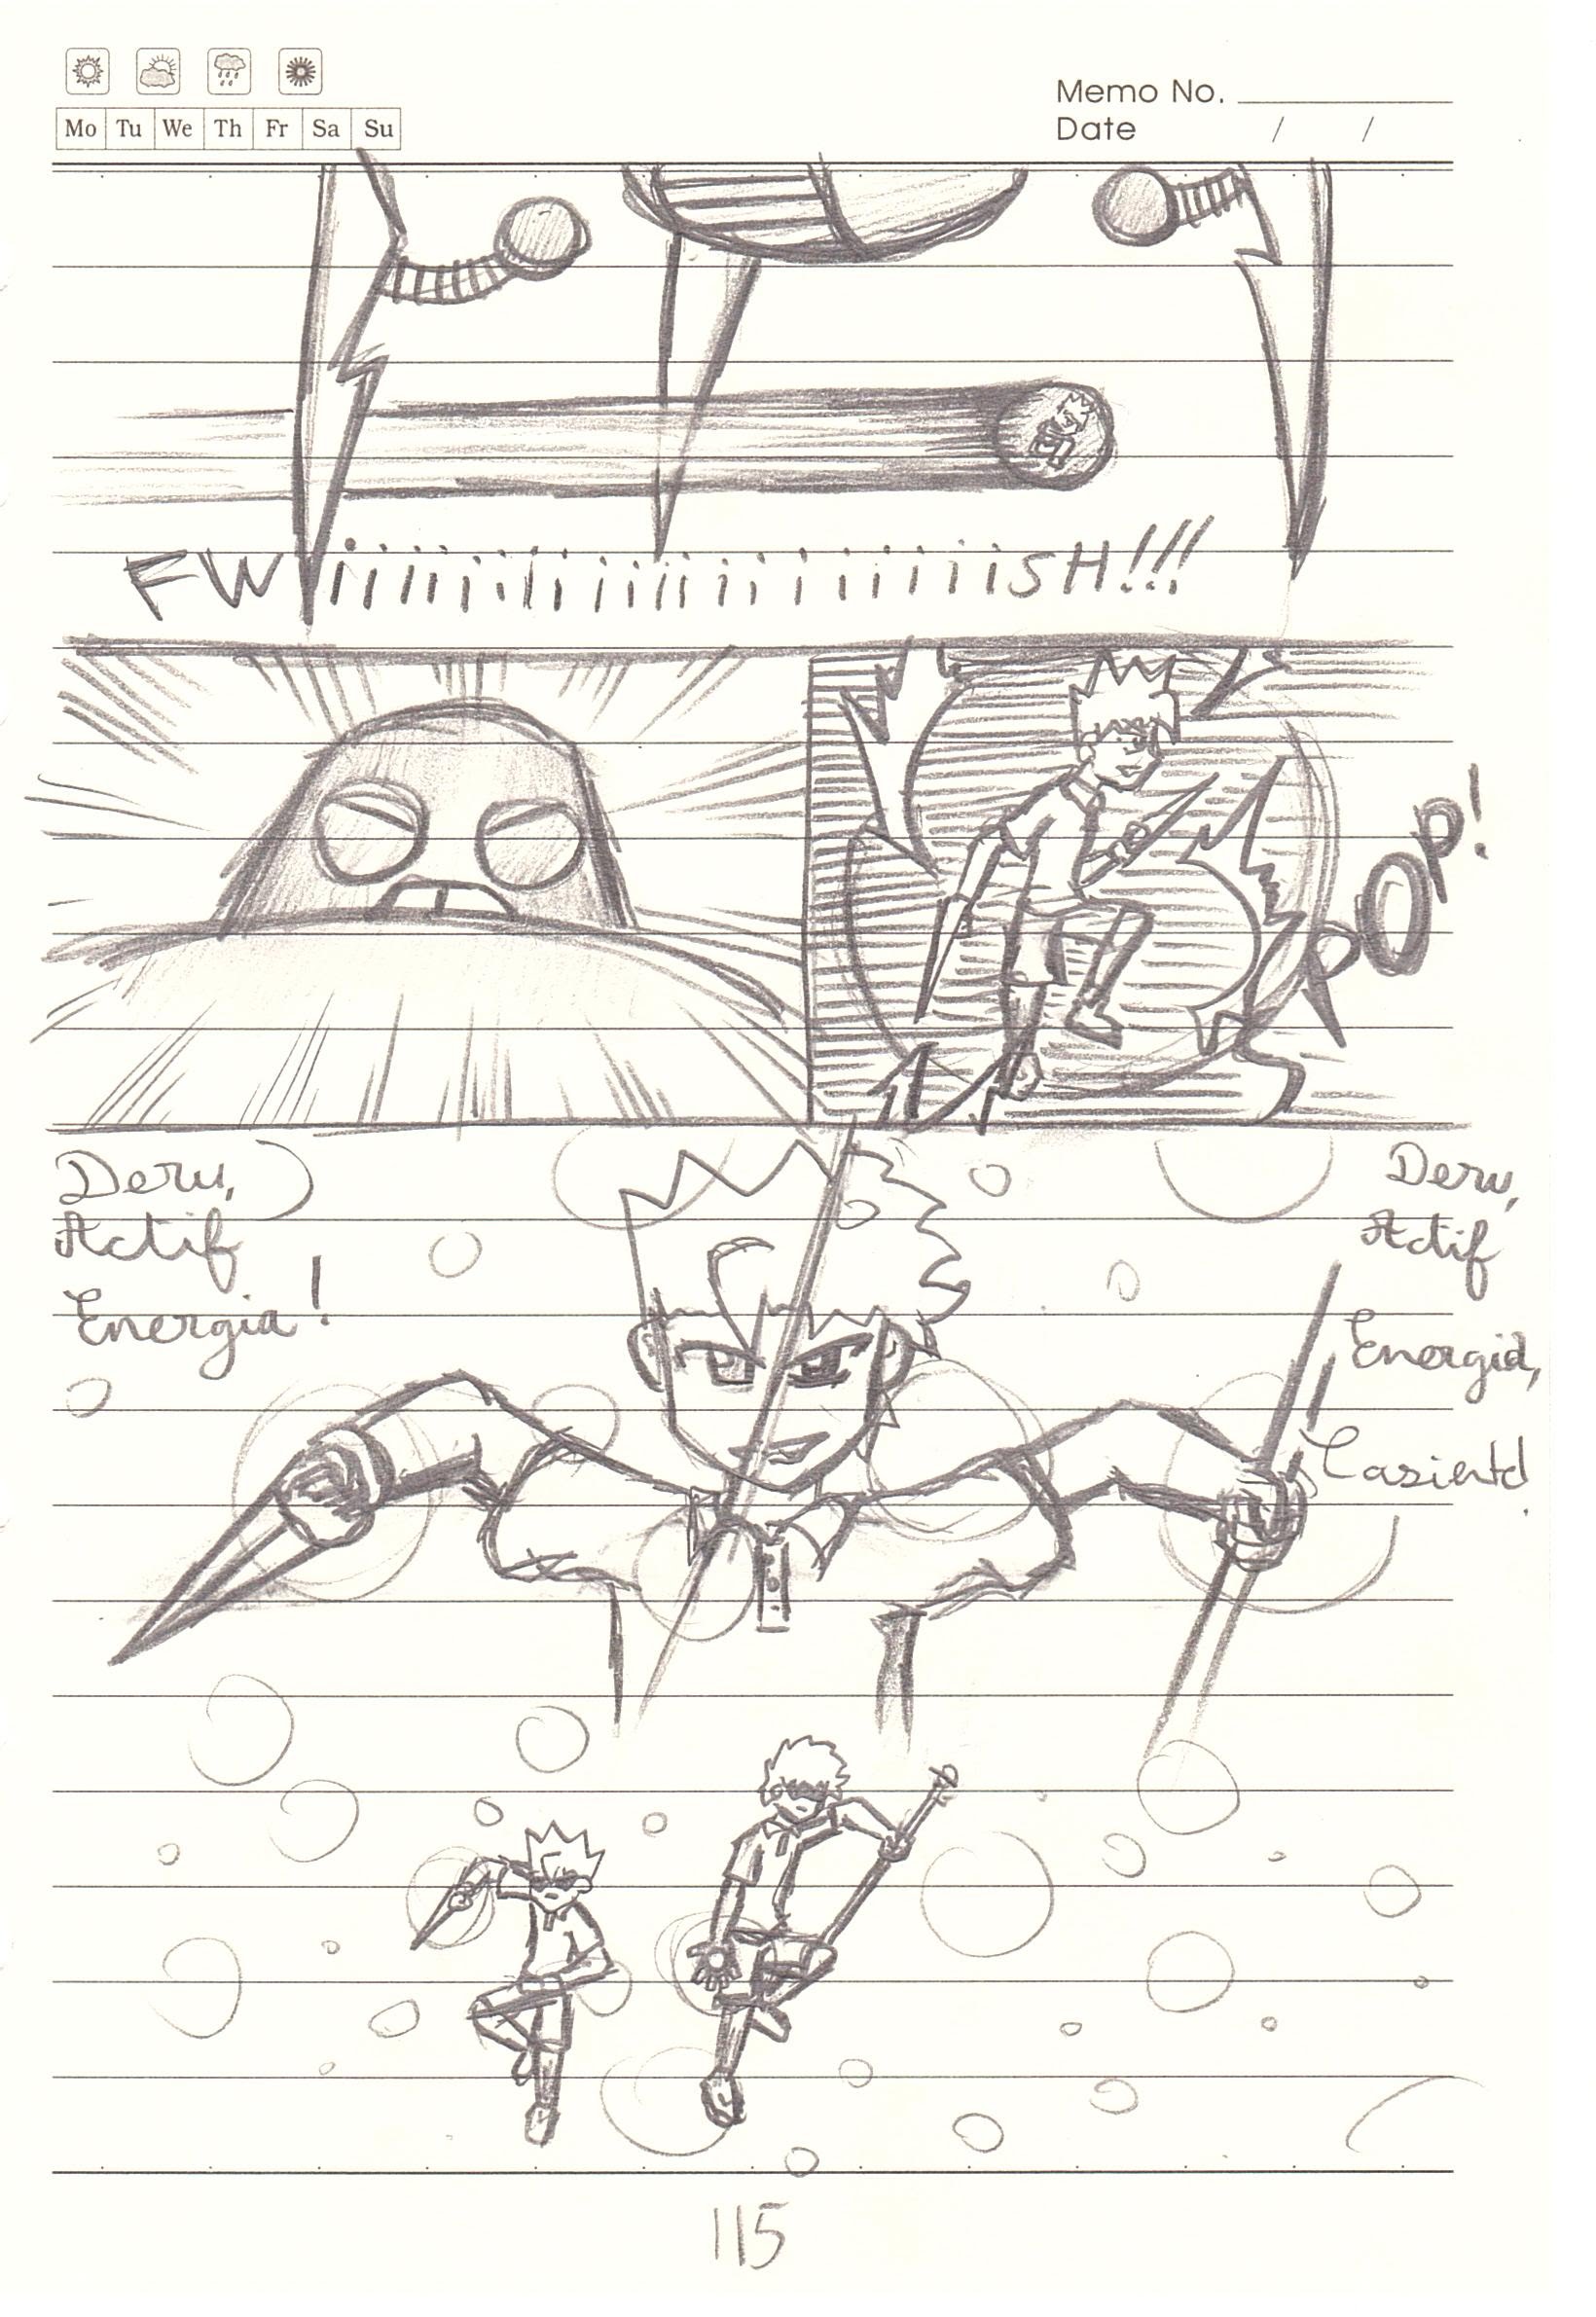 Mo Tu We Th Fr Sa Su
Memo No.
Date / /
FWiiiiiiiiiiiiiiiiiiiiiSH!!!
POP!
Deru,
Actif
Energia!
Deru,
Actif
Energia,
115